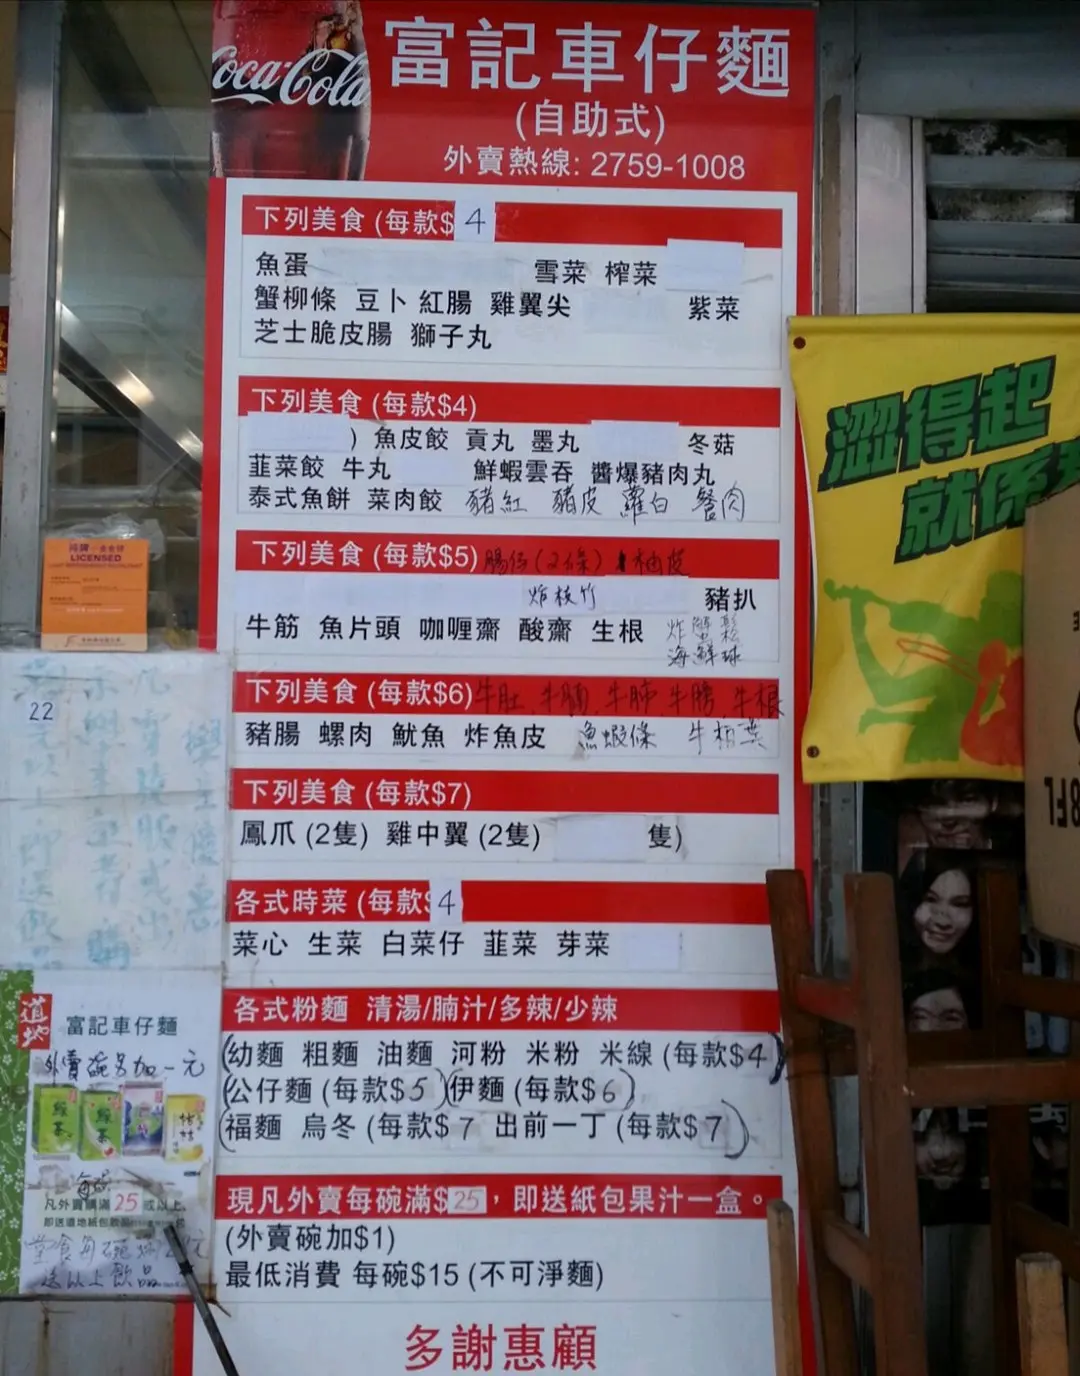 Coca-Cola
富記車仔麵
(自助式)
外賣熱線: 2759-1008
下列美食 (每款$ 4
魚蛋 雪菜 榨菜
蟹柳條 豆卜 紅腸 雞翼尖 紫菜
芝士脆皮腸 獅子丸
下列美食 (每款$4)
) 魚皮餃 貢丸 墨丸 冬菇
韮菜餃 牛丸 鮮蝦雲吞 醬爆豬肉丸
泰式魚餅 菜肉餃 豬紅 豬皮 蘿白 餐肉
下列美食 (每款$5) 腸仔(2條) 柚皮
炸枝竹 豬扒
牛筋 魚片頭 咖喱齋 酸齋 生根 炸蟹鬆
海鮮球
下列美食 (每款$6) 牛肚 牛腩 牛肺 牛膀 牛根
豬腸 螺肉 魷魚 炸魚皮 魚蝦條 牛栢葉
下列美食 (每款$7)
鳳爪 (2隻) 雞中翼 (2隻) 隻)
各式時菜 (每款$4
菜心 生菜 白菜仔 韮菜 芽菜
各式粉麵 清湯/腩汁/多辣/少辣
(幼麵 粗麵 油麵 河粉 米粉 米線 (每款$4)
(公仔麵 (每款$5)(伊麵 (每款$6)
(福麵 烏冬 (每款$7 出前一丁 (每款$7)
現凡外賣每碗滿$25，即送紙包果汁一盒。
(外賣碗加$1)
最低消費 每碗$15 (不可淨麵)
多謝惠顧
澀得起
就係
LICENSED
22
學生優惠
道地
富記車仔麵
外賣碗另加一元
每碗
凡外賣購滿25或以上,
即送道地紙包飲品
送以上飲品